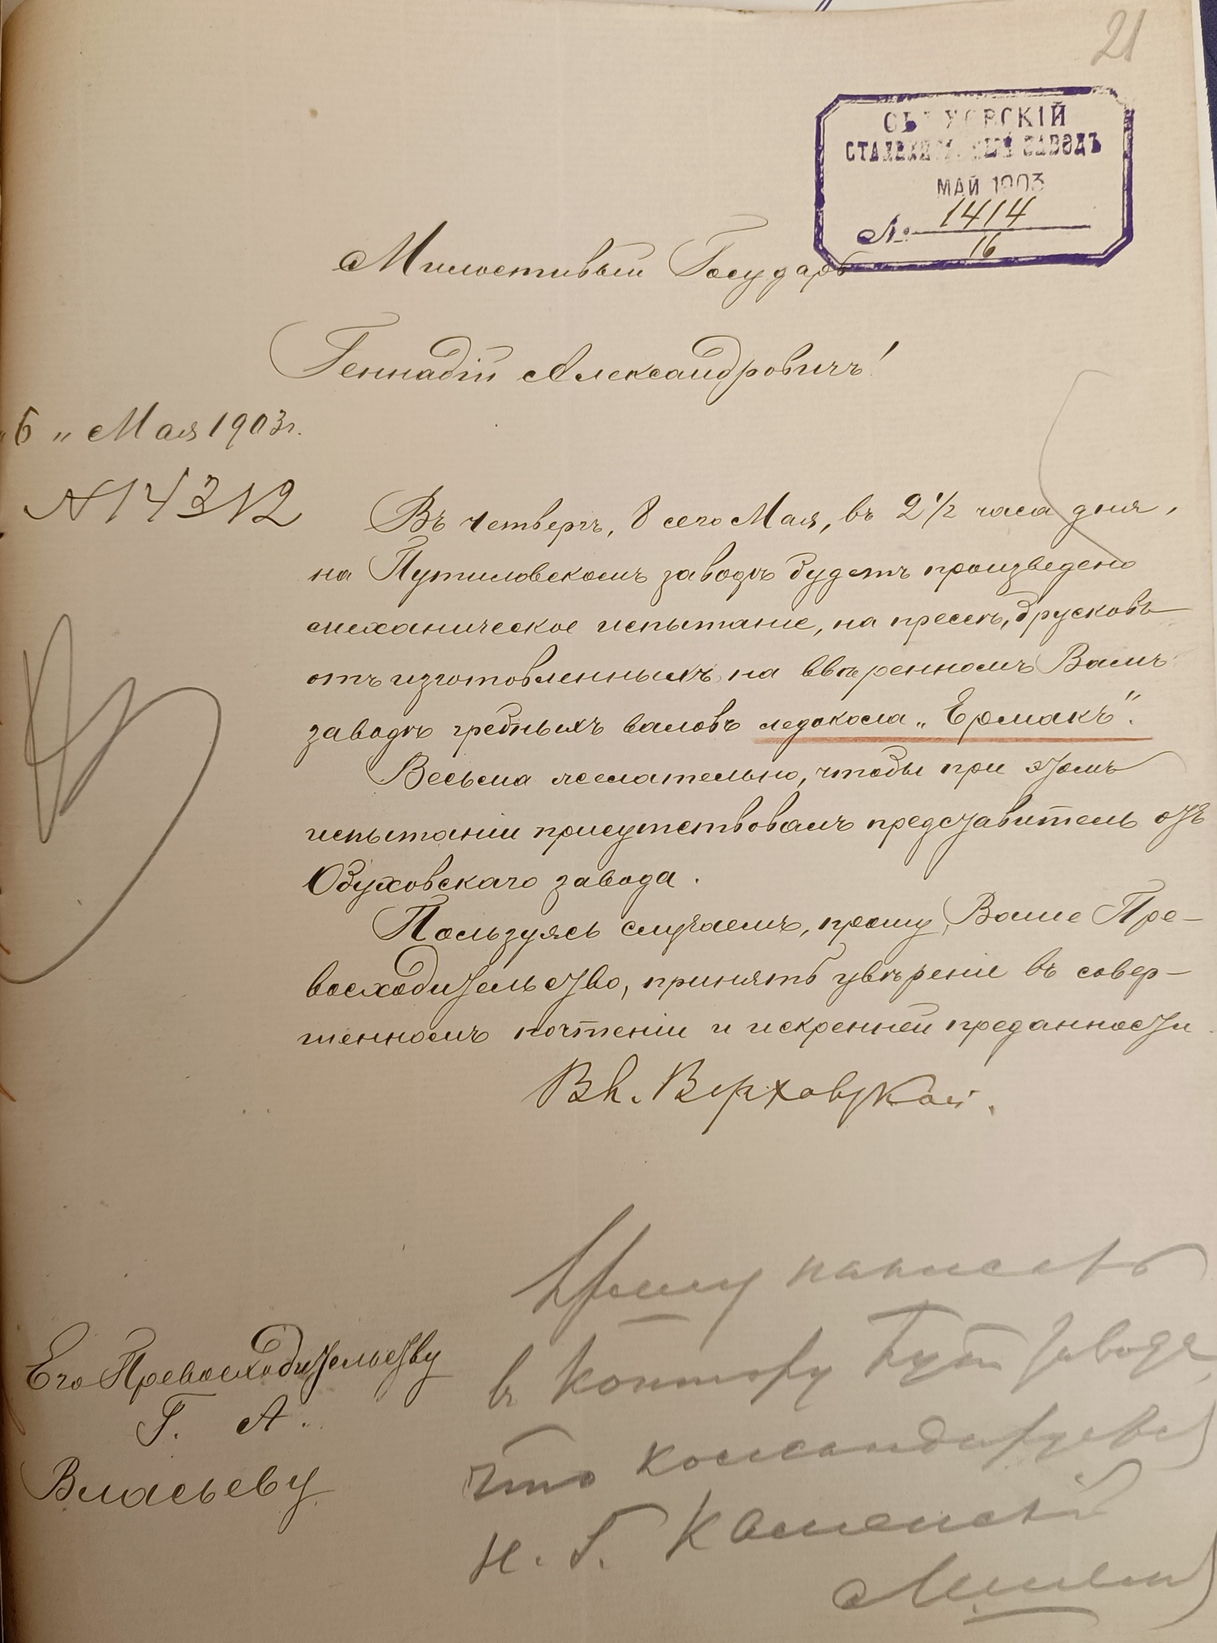 21
ОБУХОВСКІЙ
СТАЛЕЛИТЕЙНЫЙ ЗАВОДЪ
МАЙ 1903
№ 1414
16
Милостивый Государь
Геннадій Александровичъ!
"6" Мая 1903г.
N 14312
Въ четвергъ, 8 сего Мая, въ 2 1/2 часа дня,
на Путиловскомъ заводѣ будетъ произведено
механическое испытаніе, на прессѣ, брусковъ
отъ изготовленныхъ на ввѣренномъ Вамъ
заводѣ гребныхъ валовъ ледокола „Ермакъ".
Весьма желательно, чтобы при этомъ
испытаніи присутствовалъ представитель отъ
Обуховскаго завода.
Пользуясь случаемъ, прошу, Ваше Пре-
восходительство, принять увѣреніе въ совер-
шенномъ почтеніи и искренней преданности.
Вл. Верховской.
Прошу написать
в контору Пут завода,
что командируется
Н. Г. Каменскій
Его Превосходительству
Г. А.
Власьеву